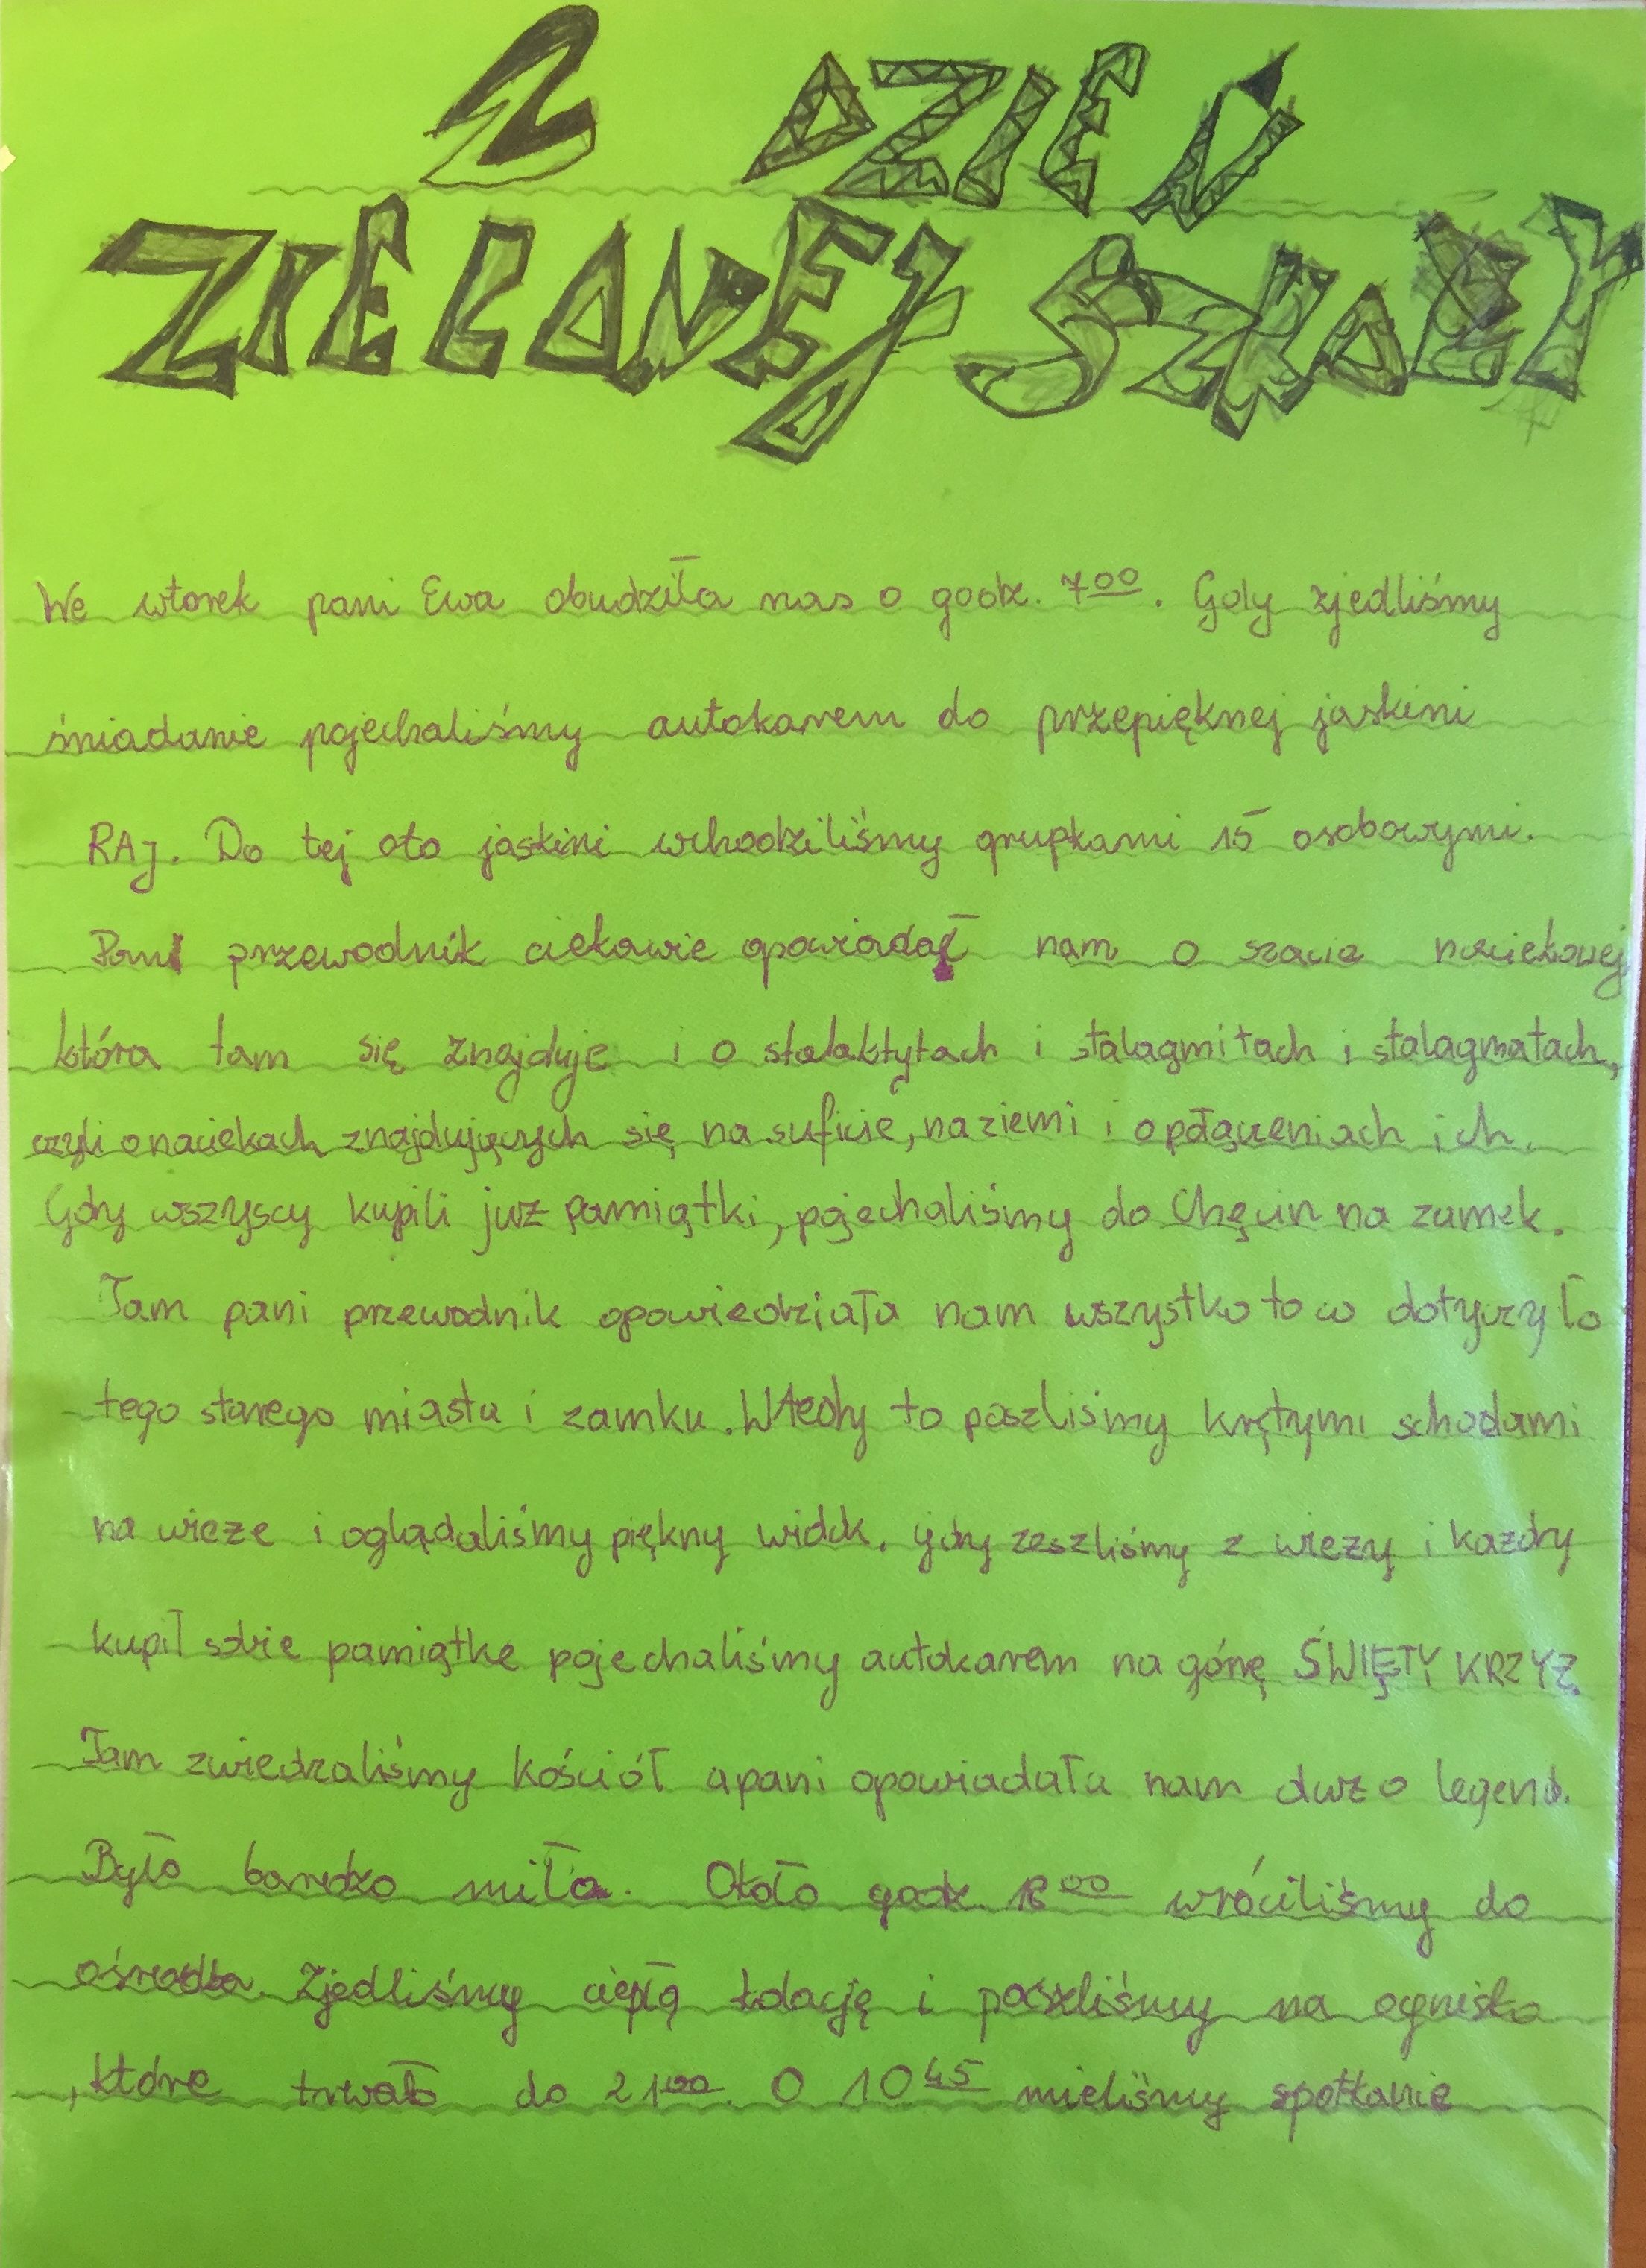 2 DZIEŃ
ZIELONEJ SZKOŁY
We wtorek pani Ewa obudziła nas o godz. 7⁰⁰. Gdy zjedliśmy
śniadanie pojechaliśmy autokarem do przepięknej jaskini
RAJ. Do tej oto jaskini wchodziliśmy grupkami 15 osobowymi.
Pani przewodnik ciekawie opowiadał nam o szacie naciekowej
która tam się znajduje i o stalaktytach i stalagmitach i stalagmatach,
czyli o naciekach znajdujących się na suficie, na ziemi i o połączeniach ich.
Gdy wszyscy kupili juz pamiątki, pojechaliśmy do Chęcin na zamek.
Tam pani przewodnik opowiedziała nam wszystko to co dotyczyło
tego starego miasta i zamku. Wtedy to poszliśmy krętymi schodami
na wieze i oglądaliśmy piękny widok. gdy zeszliśmy z wiezy i kazdy
kupił sobie pamiątke pojechaliśmy autokarem na górę ŚWIĘTY KRZYZ.
Tam zwiedzaliśmy kościół a pani opowiadała nam duzo legend.
Było bardzo miło. Około godz. 18⁰⁰ wróciliśmy do
ośrodka. Zjedliśmy ciepłą kolację i poszliśmy na ognisko
, które trwało do 21⁰⁰. O 10⁴⁵ mieliśmy spotkanie